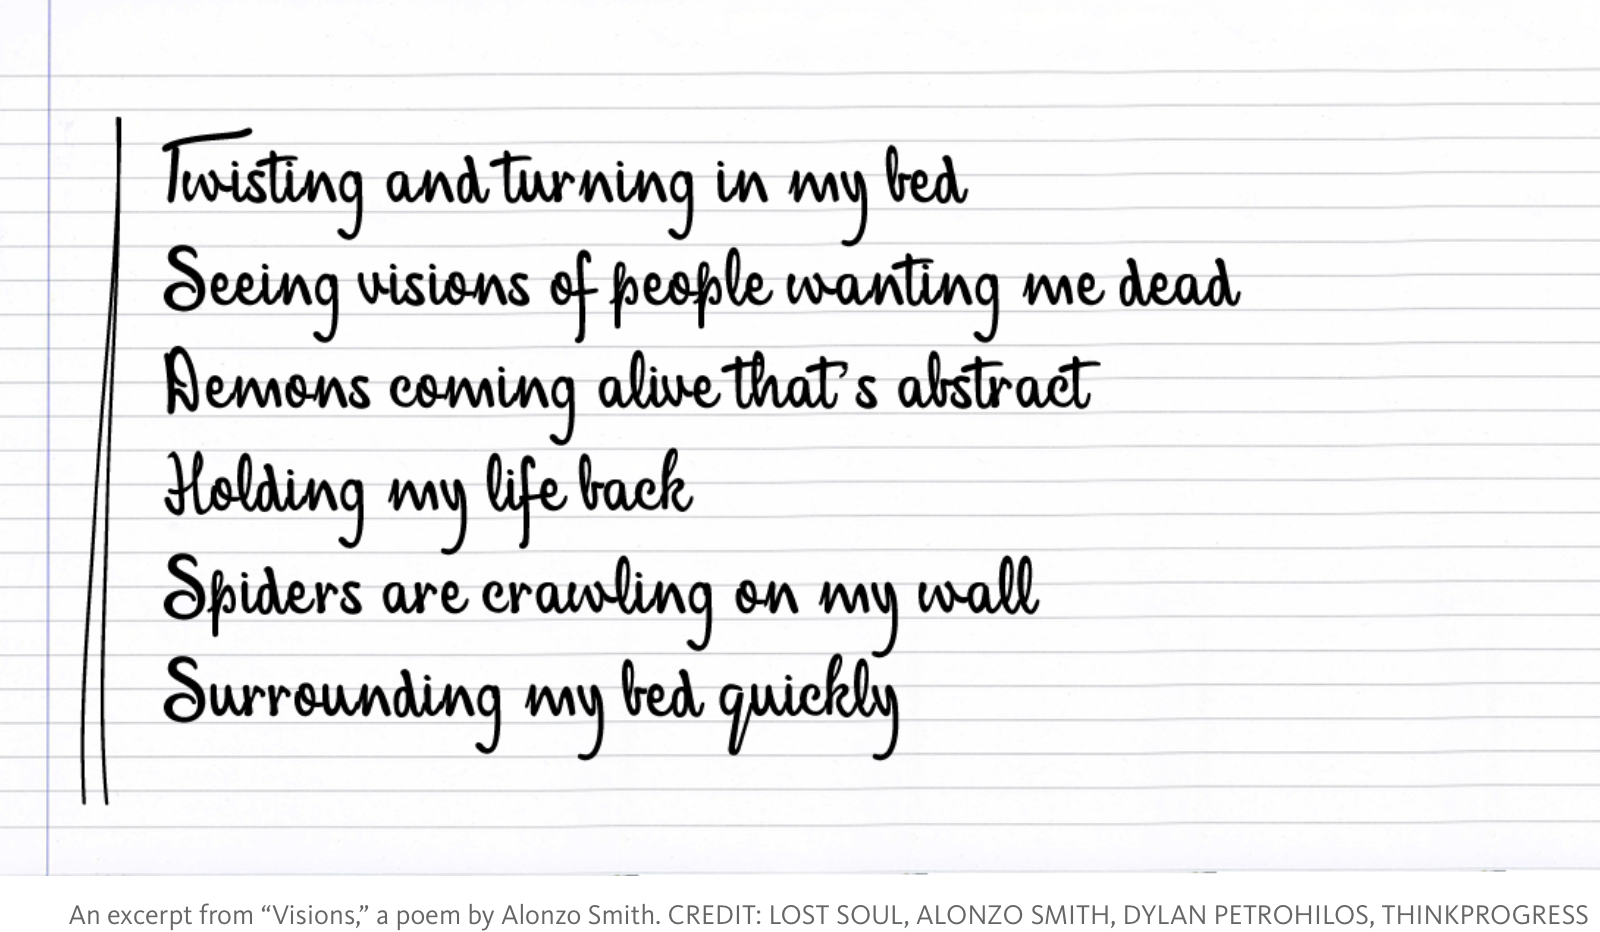 Twisting and turning in my bed
Seeing visions of people wanting me dead
Demons coming alive that's abstract
Holding my life back
Spiders are crawling on my wall
Surrounding my bed quickly
An excerpt from “Visions,” a poem by Alonzo Smith. CREDIT: LOST SOUL, ALONZO SMITH, DYLAN PETROHILOS, THINKPROGRESS